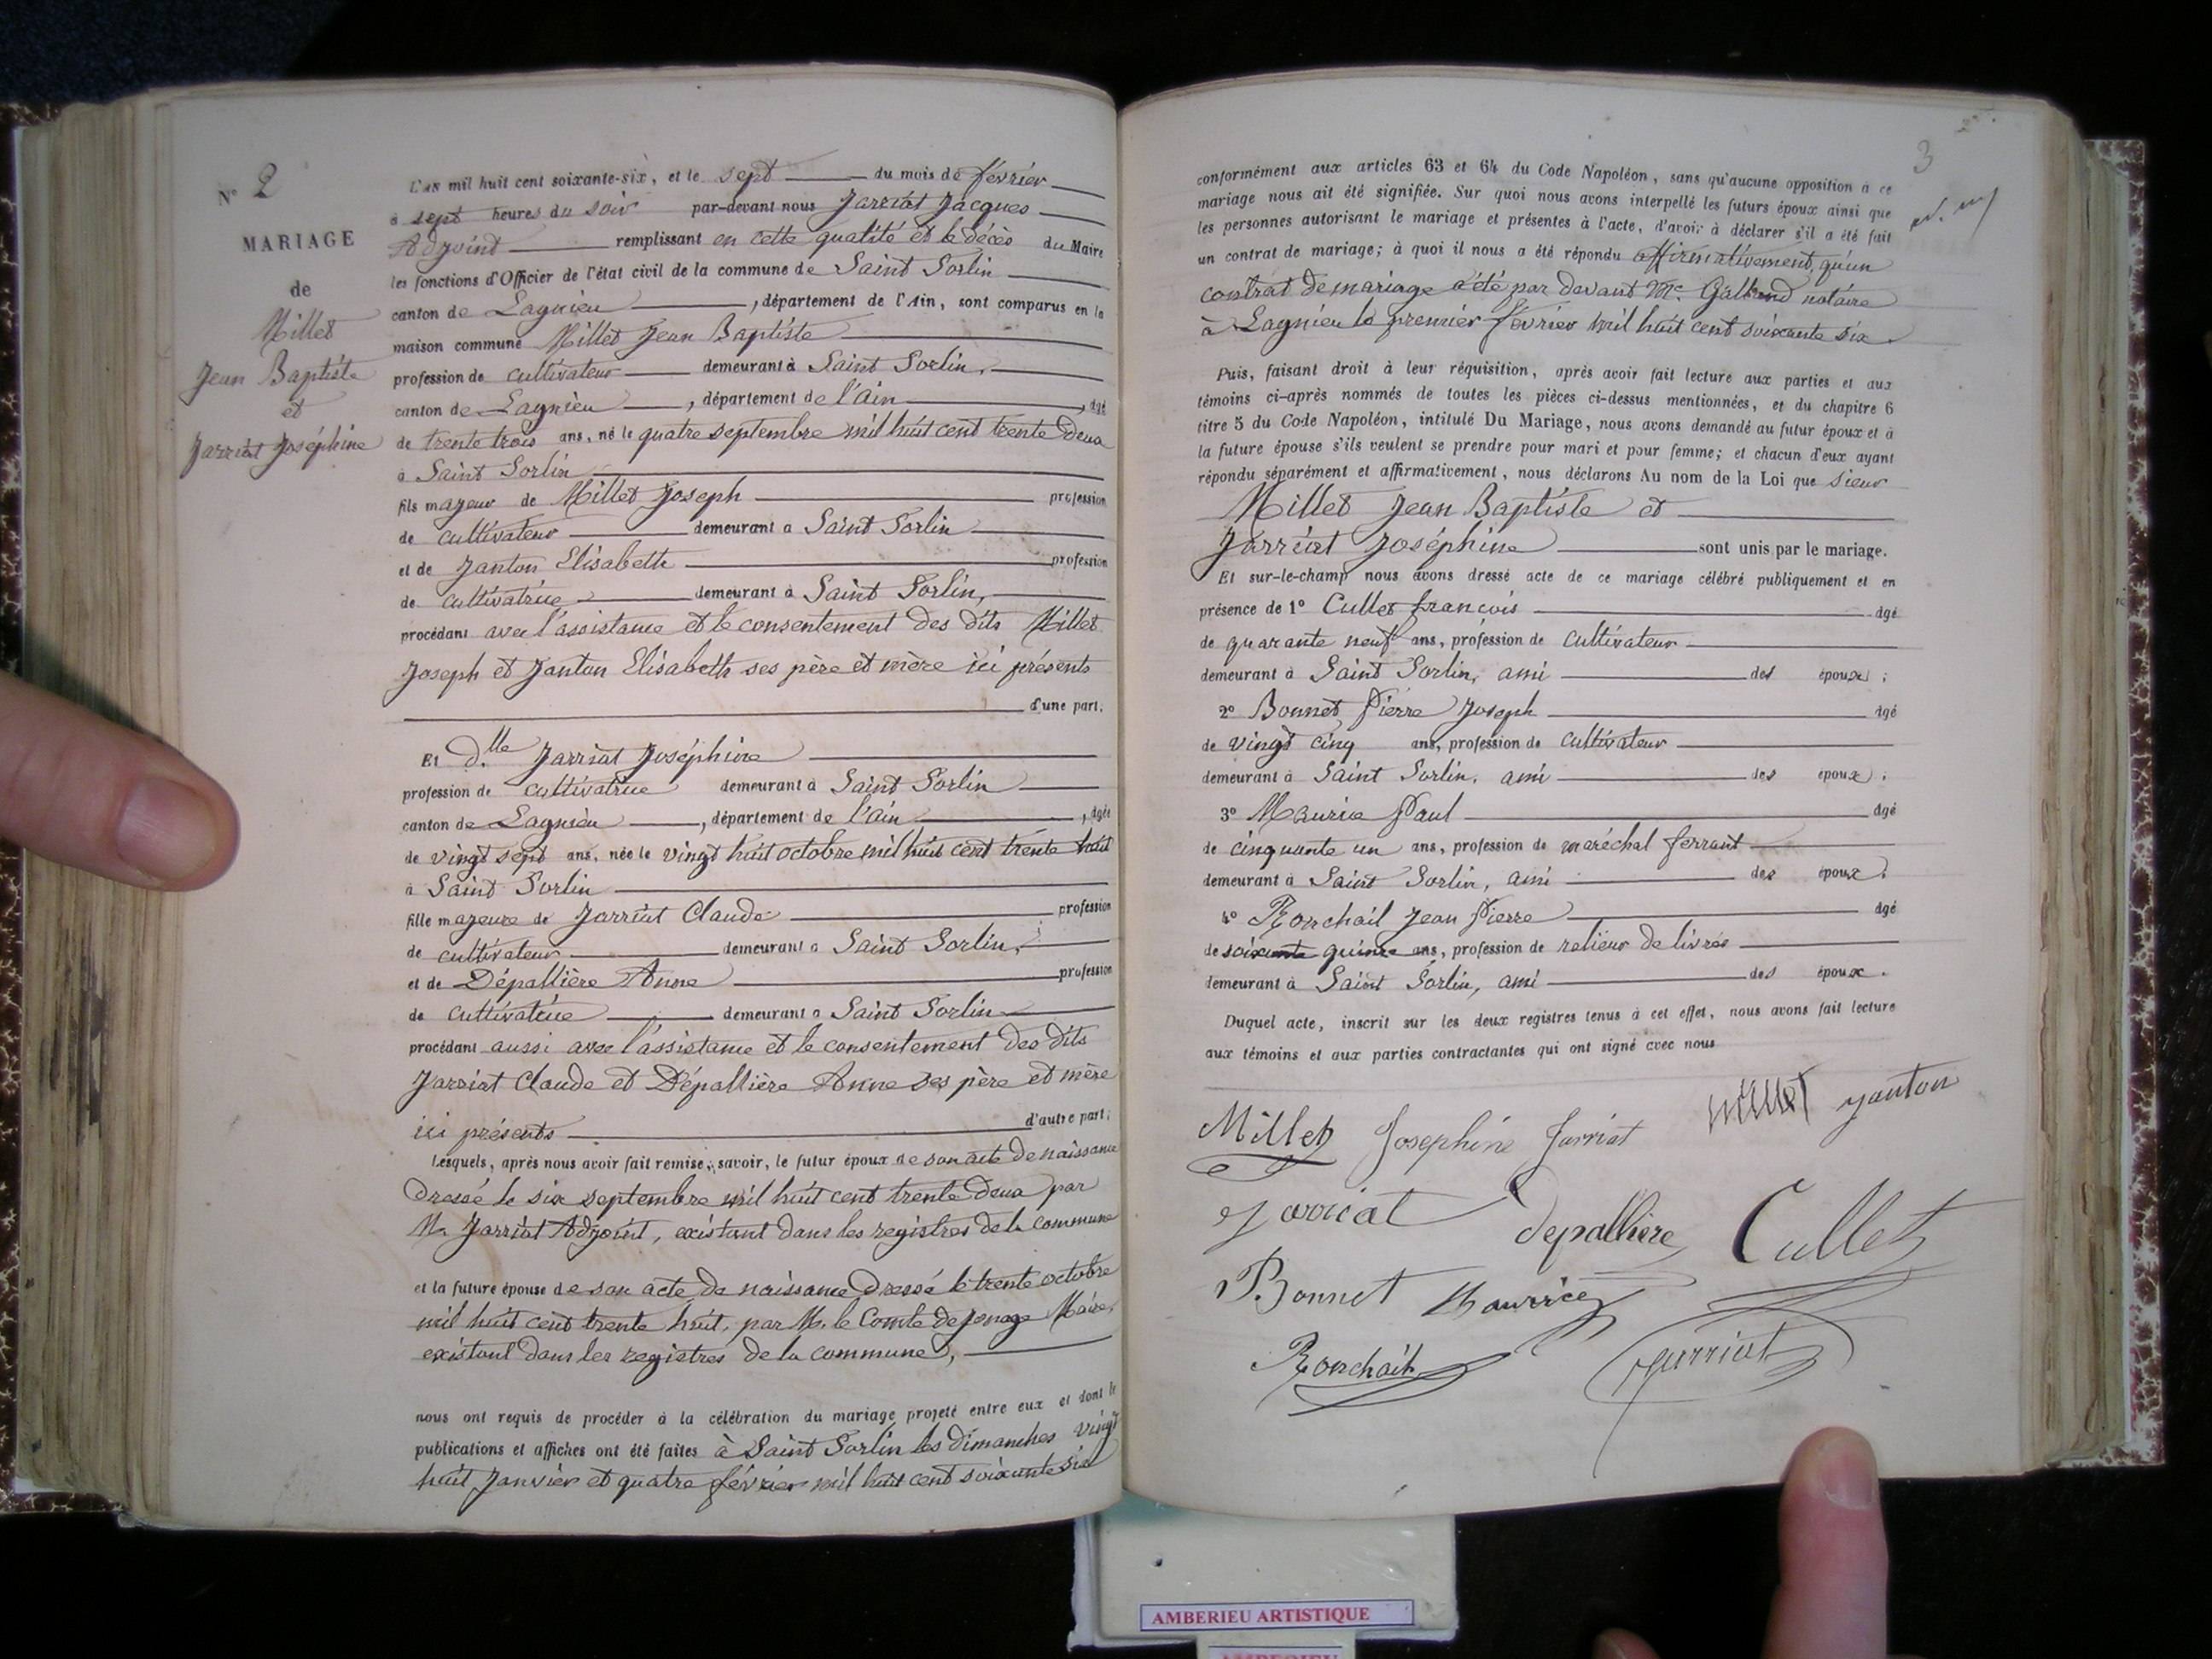 N° 2
MARIAGE
de
Millet
Jean Baptiste
et
Jarriat Joséphine
L'an mil huit cent soixante-six, et le sept du mois de février
à sept heures du soir par-devant nous Jarriat Jacques
Adjoint remplissant en cette qualité et le décès du Maire
les fonctions d'Officier de l'état civil de la commune de Saint Sorlin
canton de Lagnieu, département de l'Ain, sont comparus en la
maison commune Millet Jean Baptiste
profession de cultivateur demeurant à Saint Sorlin,
canton de Lagnieu, département de l'ain, âgé
de trente trois ans, né le quatre septembre mil huit cent trente deux
à Saint Sorlin
fils majeur de Millet Joseph profession
de cultivateur demeurant à Saint Sorlin
et de Janton Elisabeth profession
de cultivatrice demeurant à Saint Sorlin,
procédant avec l'assistance et le consentement des dits Millet
Joseph et Janton Elisabeth ses père et mère ici présents
d'une part.
Et d.lle Jarriat Joséphine
profession de cultivatrice demeurant à Saint Sorlin
canton de Lagnieu, département de l'ain, âgée
de vingt sept ans, née le vingt huit octobre mil huit cent trente huit
à Saint Sorlin
fille majeure de Jarriat Claude profession
de cultivateur demeurant à Saint Sorlin,
et de Dépallière Anne profession
de cultivatrice demeurant à Saint Sorlin
procédant aussi avec l'assistance et le consentement des dits
Jarriat Claude et Dépallière Anne ses père et mère
ici présents d'autre part;
Lesquels, après nous avoir fait remise, savoir, le futur époux de son acte de naissance
dressé le six septembre mil huit cent trente deux par
Mr Jarriat Adjoint, existant dans les registres de la commune
et la future épouse de son acte de naissance dressé le trente octobre
mil huit cent trente huit, par M. le Comte de Jonage Maire,
existant dans les registres de la commune,
nous ont requis de procéder à la célébration du mariage projeté entre eux et dont les
publications et affiches ont été faites à Saint Sorlin les dimanches vingt
huit Janvier et quatre février mil huit cent soixante six
3
conformément aux articles 63 et 64 du Code Napoléon, sans qu'aucune opposition à ce
mariage nous ait été signifiée. Sur quoi nous avons interpellé les futurs époux ainsi que
les personnes autorisant le mariage et présentes à l'acte, d'avoir à déclarer s'il a été fait
un contrat de mariage; à quoi il nous a été répondu affirmativement, qu'un
contrat de mariage a été par devant Me. Galland notaire
à Lagnieu le premier février mil huit cent soixante six.
Puis, faisant droit à leur réquisition, après avoir fait lecture aux parties et aux
témoins ci-après nommés de toutes les pièces ci-dessus mentionnées, et du chapitre 6
titre 5 du Code Napoléon, intitulé Du Mariage, nous avons demandé au futur époux et à
la future épouse s'ils veulent se prendre pour mari et pour femme; et chacun d'eux ayant
répondu séparément et affirmativement, nous déclarons Au nom de la Loi que sieur
Millet Jean Baptiste et
Jarriat Joséphine sont unis par le mariage.
Et sur-le-champ nous avons dressé acte de ce mariage célébré publiquement et en
présence de 1° Cullet françois âgé
de quarante neuf ans, profession de cultivateur
demeurant à Saint Sorlin, ami des époux;
2° Bonnet Pierre Joseph âgé
de vingt cinq ans, profession de cultivateur
demeurant à Saint Sorlin, ami des époux;
3° Maurice Paul âgé
de cinquante un ans, profession de maréchal ferrant
demeurant à Saint Sorlin, ami des époux;
4° Ronchail Jean Pierre âgé
de soixante quinze ans, profession de relieur de livres
demeurant à Saint Sorlin, ami des époux.
Duquel acte, inscrit sur les deux registres tenus à cet effet, nous avons fait lecture
aux témoins et aux parties contractantes qui ont signé avec nous
Millet Josephine Jarriat Millet Janton
Jarriat depallière Cullet
Bonnet Maurice
Ronchail Jarriat
AMBERIEU ARTISTIQUE